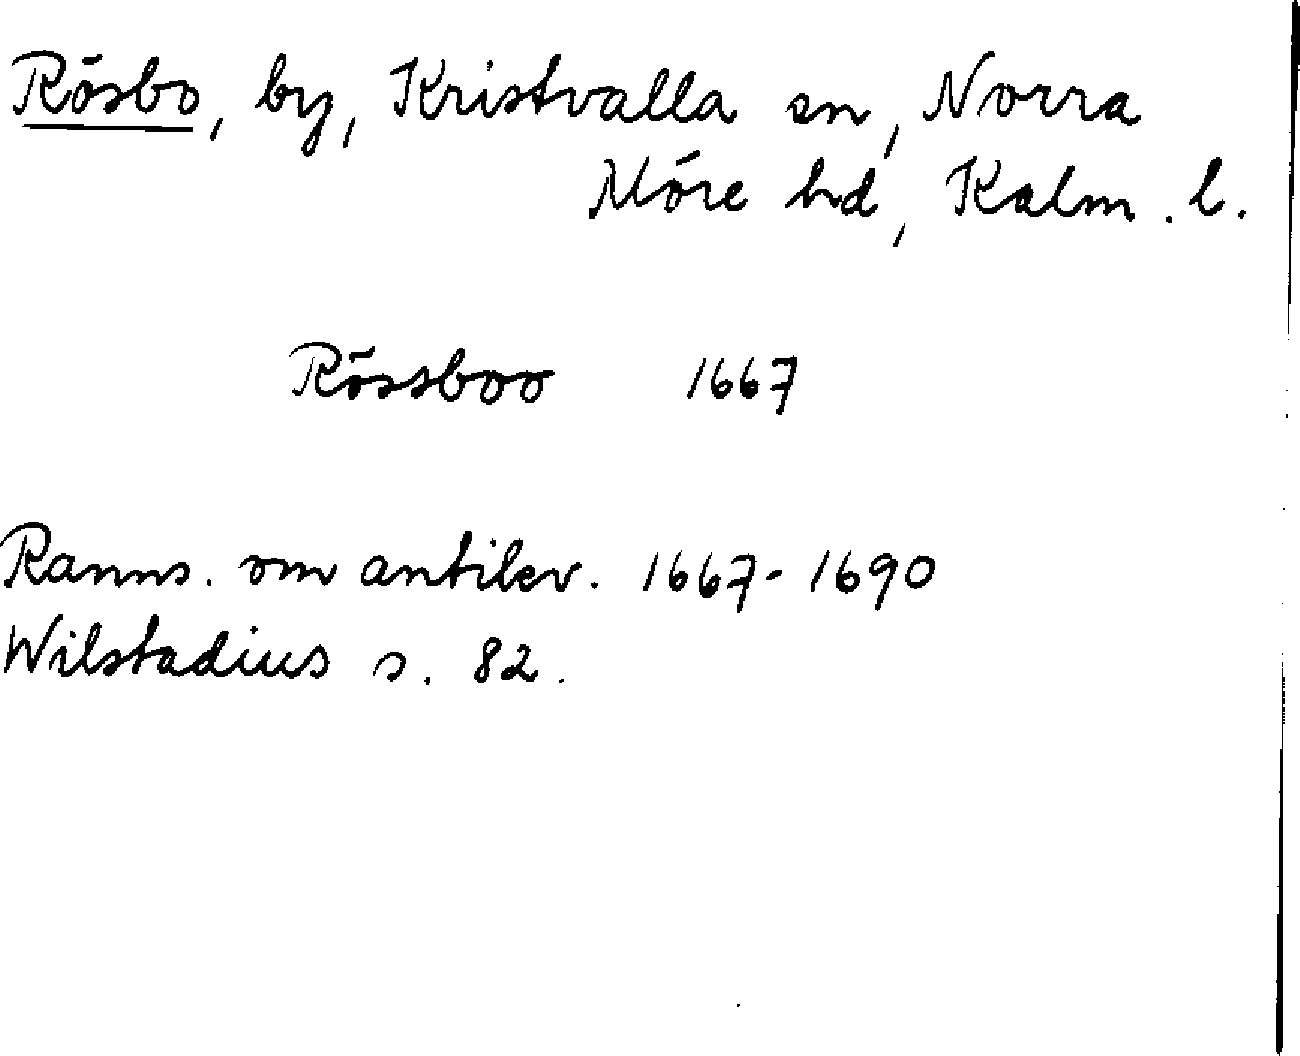 Rösbo, by, Kristvalla sn, Norra
Möre hd, Kalm. l.
Rössboo 1667
Ranns. om antikv. 1667-1690
Wilstadius s. 82.